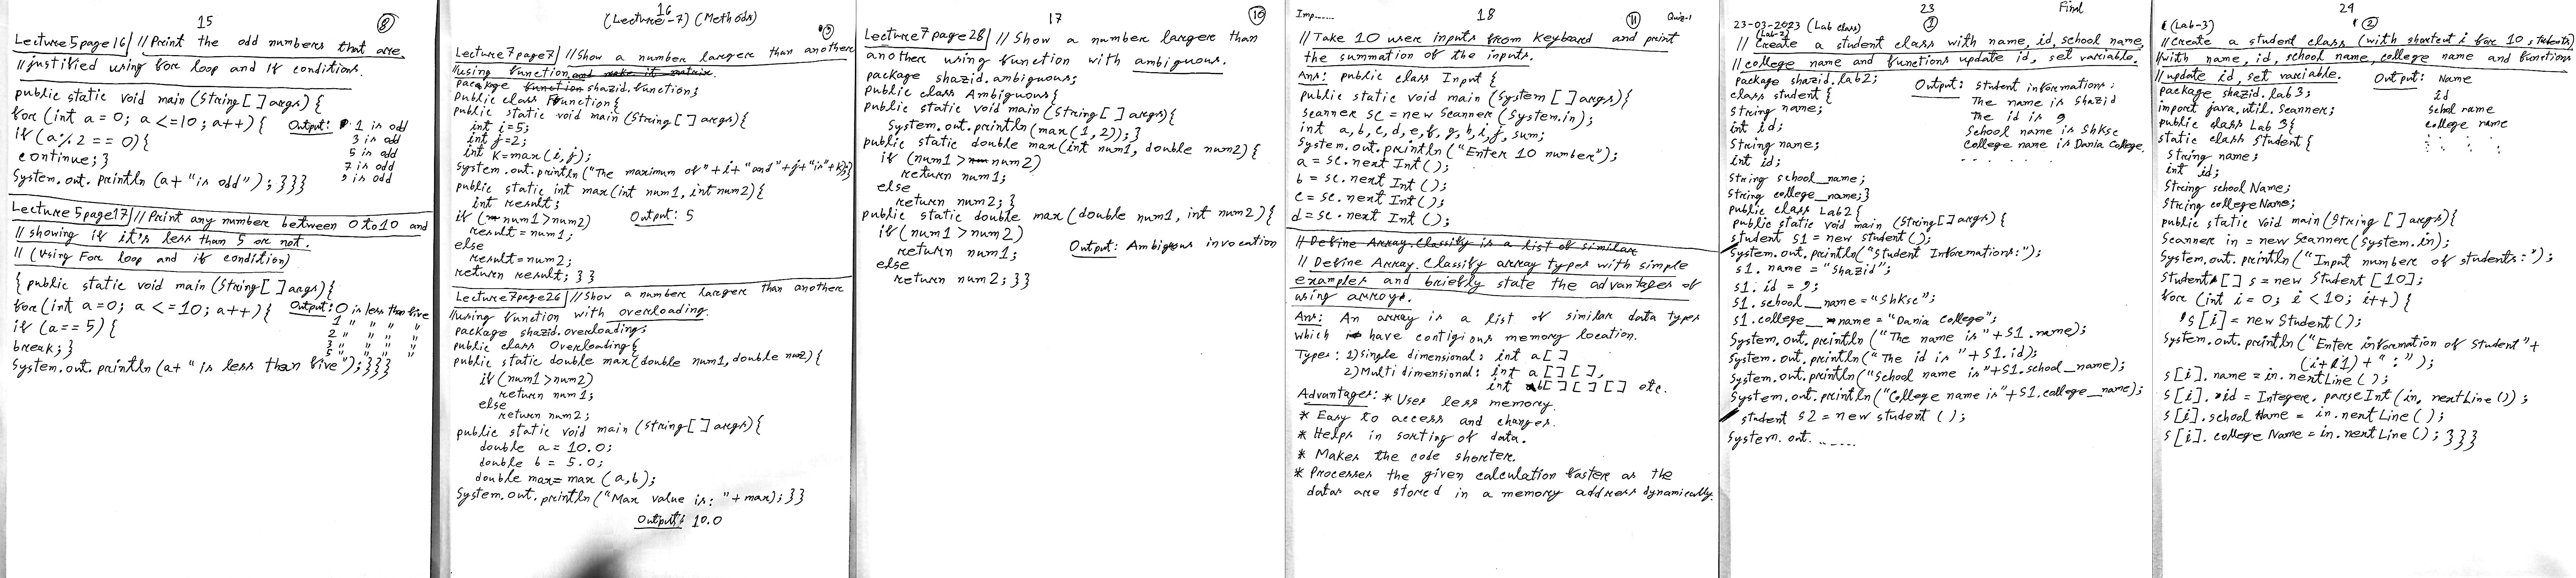 15
8
Lecture 5 page 16 // Print the odd numbers that are
// justified using for loop and if conditions.
public static void main (String [ ] args) {
for (int a = 0; a <=10; a++) {
if (a % 2 == 0) {
continue; }
System.out.println (a+ "is odd"); }}}
Output: 1 is odd
3 is odd
5 is odd
7 is odd
9 is odd
Lecture 5 page 17 // Print any number between 0 to 10 and
// showing if it's less than 5 or not.
// (Using For loop and if condition)
{ public static void main (String [ ] args) {
for (int a=0; a <= 10; a++) {
if (a == 5) {
break; }
System.out.println (a+ "is less than five"); }}}
Output: 0 is less than five
1 " " " "
2 " " " "
3 " " " "
16
(Lecture-7) (Methods)
9
Lecture 7 page 7 // Show a number larger than another
// using function and make it matrix.
package function shazid.function;
public class Function {
public static void main (String [ ] args) {
int i=5;
int j=2;
int k=max(i,j);
System.out.println("The maximum of"+i+"and"+j+"is"+k);}
public static int max(int num1, int num2) {
int result;
if (num1>num2)
result=num1;
else
result=num2;
return result; } }
Output: 5
Lecture 7 page 26 // Show a number larger than another
// using function with overloading.
package shazid.overloading;
public class Overloading {
public static double max(double num1, double num2) {
if (num1 > num2)
return num1;
else
return num2;
public static void main (String [ ] args) {
double a = 10.0;
double b = 5.0;
double max= max (a,b);
System.out.println ("Max value is: "+ max); } }
Output: 10.0
17
10
Lecture 7 page 28 // Show a number larger than
another using function with ambiguous.
package shazid.ambiguous;
public class Ambiguous {
public static void main (String [ ] args) {
System.out.println (max (1, 2)); }
public static double max(int num1, double num2) {
if (num1 > num2)
return num1;
else
return num2; }
public static double max (double num1, int num2) {
if (num1 > num2)
return num1;
else
return num2; } }
Output: Ambigous invocation
Imp......
18
11
Quiz-1
// Take 10 user inputs from keyboard and print
the summation of the inputs.
Ans: public class Input {
public static void main (System [ ] args) {
Scanner sc = new Scanner (System.in);
int a, b, c, d, e, f, g, h, i, j, sum;
System.out.println ("Enter 10 number");
a = sc.next Int ();
b = sc.next Int ();
c = sc.next Int ();
d = sc.next Int ();
// Define Array. Classify is a list of similar
// Define Array. Classify array types with simple
examples and briefly state the advantages of
using arrays.
Ans: An array is a list of similar data types
which have contigious memory location.
Types: 1) Single dimensional: int a [ ]
2) Multi dimensional: int a [ ] [ ],
int b[ ] [ ] [ ] etc.
Advantages: * Uses less memory.
* Easy to access and changes.
* Helps in sorting of data.
* Makes the code shorter.
* Processes the given calculation faster as the
datas are stored in a memory address dynamically.
23
Final
23-03-2023 (Lab class)
(Lab-2)
1
// Create a student class with name, id, school name,
// college name and functions update id, set variable.
package shazid.lab2;
class student {
String name;
int id;
String name;
int id;
String school_name;
String college_name; }
public class Lab2 {
public static void main (String [ ] args) {
student s1 = new student ();
System.out.println("Student Informations:");
s1.name = "Shazid";
s1.id = 9;
s1.school_name = "Shksc";
s1.college_name = "Dania College";
System.out.println ("The name is"+s1.name);
System.out.println ("The id is "+s1.id);
System.out.println("School name is"+s1.school_name);
System.out.println ("College name is"+s1.college_name);
student s2 = new student ();
System.out. ......
Output: Student informations:
The name is Shazid
The id is 9
School name is Shksc
College name is Dania College.
. . . . . .
24
(Lab-3)
2
// Create a student class (with shortcut i for 10 students)
// with name, id, school name, college name and functions
// update id, set variable.
package shazid.lab3;
import java.util.Scanner;
public class Lab 3 {
static class Student {
String name;
int id;
String school Name;
String college Name;
public static void main (String [ ] args) {
Scanner in = new Scanner (System.in);
System.out.println ("Input number of students:");
Student [ ] s = new Student [10];
for (int i = 0; i < 10; i++) {
s [i] = new Student ();
System.out.println ("Enter information of student"+
(i+1) + " : ");
s [i]. name = in. nextLine ();
s [i]. id = Integer. parseInt (in. nextLine ());
s [i]. school Name = in. nextLine ();
s [i]. college Name = in. nextLine (); } } }
Output: Name
id
school name
college name